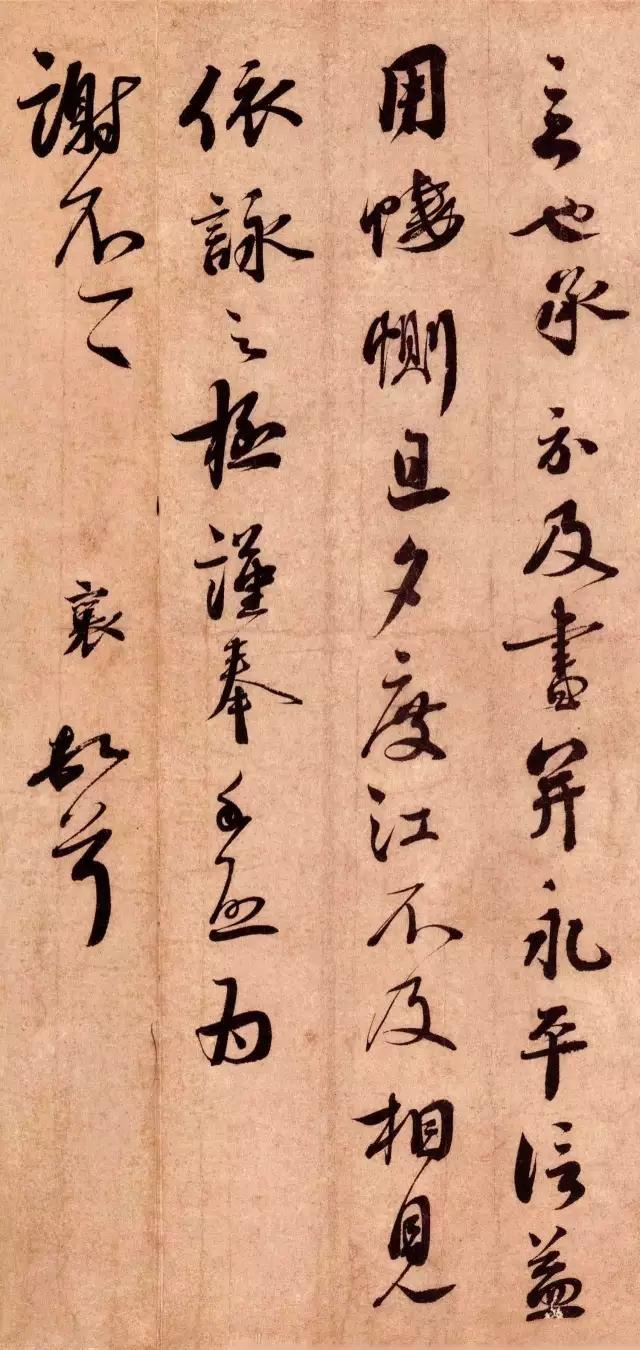 言也承 示及書并永平信益
用悽惻旦夕度江不及相見
依詠之極謹奉手啓為
謝不一一 襄 頓首